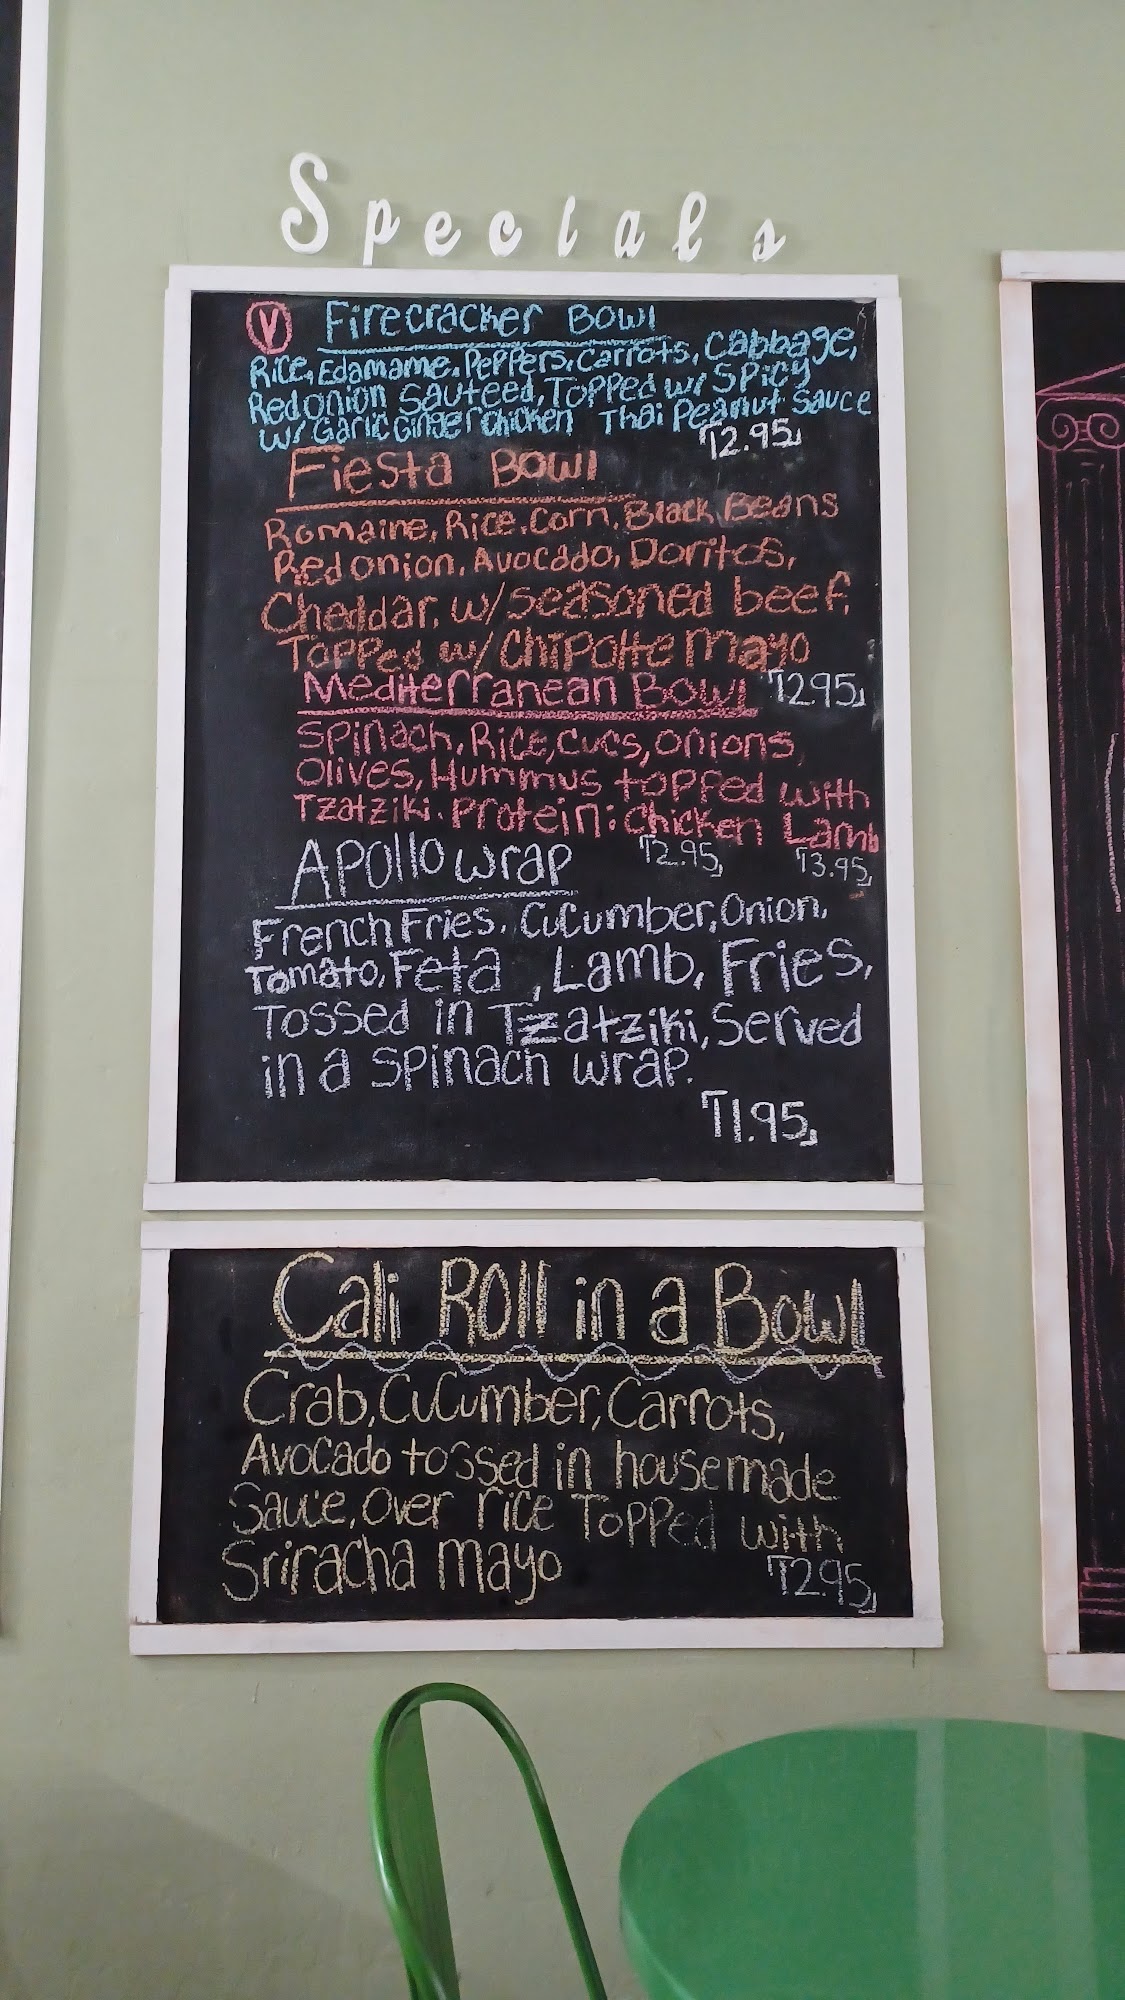 Specials
V Firecracker Bowl
Rice, Edamame, Peppers, Carrots, Cabbage,
Red onion Sauteed, Topped w/ Spicy
w/ Garlic Ginger Chicken Thai Peanut Sauce
12.95
Fiesta Bowl
Romaine, Rice, Corn, Black Beans
Red onion, Avocado, Doritos,
Cheddar, w/ seasoned beef,
Topped w/ Chipolte mayo
Mediterranean Bowl 12.95
Spinach, Rice, cucs, onions,
Olives, Hummus topped with
Tzatziki. Protein: Chicken Lamb
12.95 13.95
Apollo wrap
French Fries, Cucumber, Onion,
Tomato, Feta, Lamb, Fries,
Tossed in Tzatziki, Served
in a spinach wrap.
11.95
Cali Roll in a Bowl
Crab, Cucumber, Carrots,
Avocado tossed in housemade
Sauce, over rice Topped with
Sriracha mayo 12.95